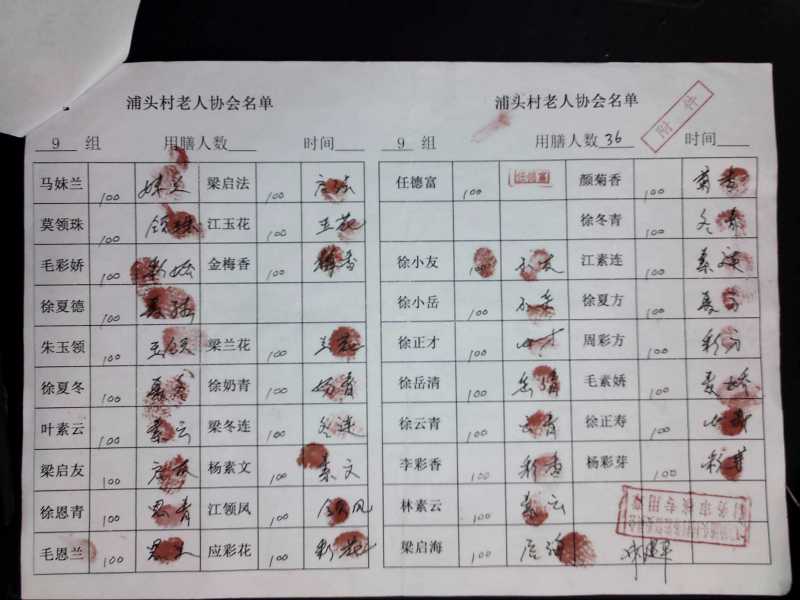 浦头村老人协会名单
9 组 用膳人数 时间
马妹兰 100 妹兰 梁启法 100 启法
莫领珠 100 领珠 江玉花 100 玉花
毛彩娇 100 彩娇 金梅香 100 梅香
徐夏德 100 夏德
朱玉领 100 玉领 梁兰花 100 兰花
徐夏冬 100 夏冬 徐奶青 100 奶青
叶素云 100 素云 梁冬连 100 冬连
梁启友 100 启友 杨素文 100 素文
徐恩青 100 恩青 江领凤 100 领凤
毛恩兰 100 恩兰 应彩花 100 彩花
浦头村老人协会名单
附件
9 组 用膳人数 36 时间
任德富 100 任德富 颜菊香 100 菊香
徐冬青 100 冬青
徐小友 100 小友 江素连 100 素连
徐小岳 100 小岳 徐夏方 100 夏方
徐正才 100 正才 周彩方 100 彩方
徐岳清 100 岳清 毛素娇 100 素娇
徐云青 100 云青 徐正寿 100 正寿
李彩香 100 彩香 杨彩芽 100 彩芽
林素云 100 素云
梁启海 100 启海